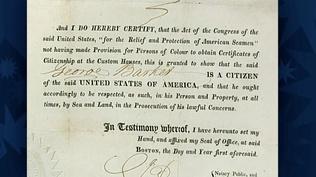 And I DO HEREBY CERTIFY, that the Act of the Congress of the
said United States, "for the Relief and Protection of American Seamen"
not having made Provision for Persons of Colour to obtain Certificates of
Citizenship at the Custom Houses, this is granted to show that the said
George Barker IS A CITIZEN
of the said UNITED STATES OF AMERICA, and that he ought
accordingly to be respected, as such, in his Person and Property, at all
times, by Sea and Land, in the Prosecution of his lawful Concerns.
In Testimony whereof, I have hereunto set my
Hand, and affixed my Seal of Office, at said
BOSTON, the Day and Year first aforesaid.
Notary Public, and